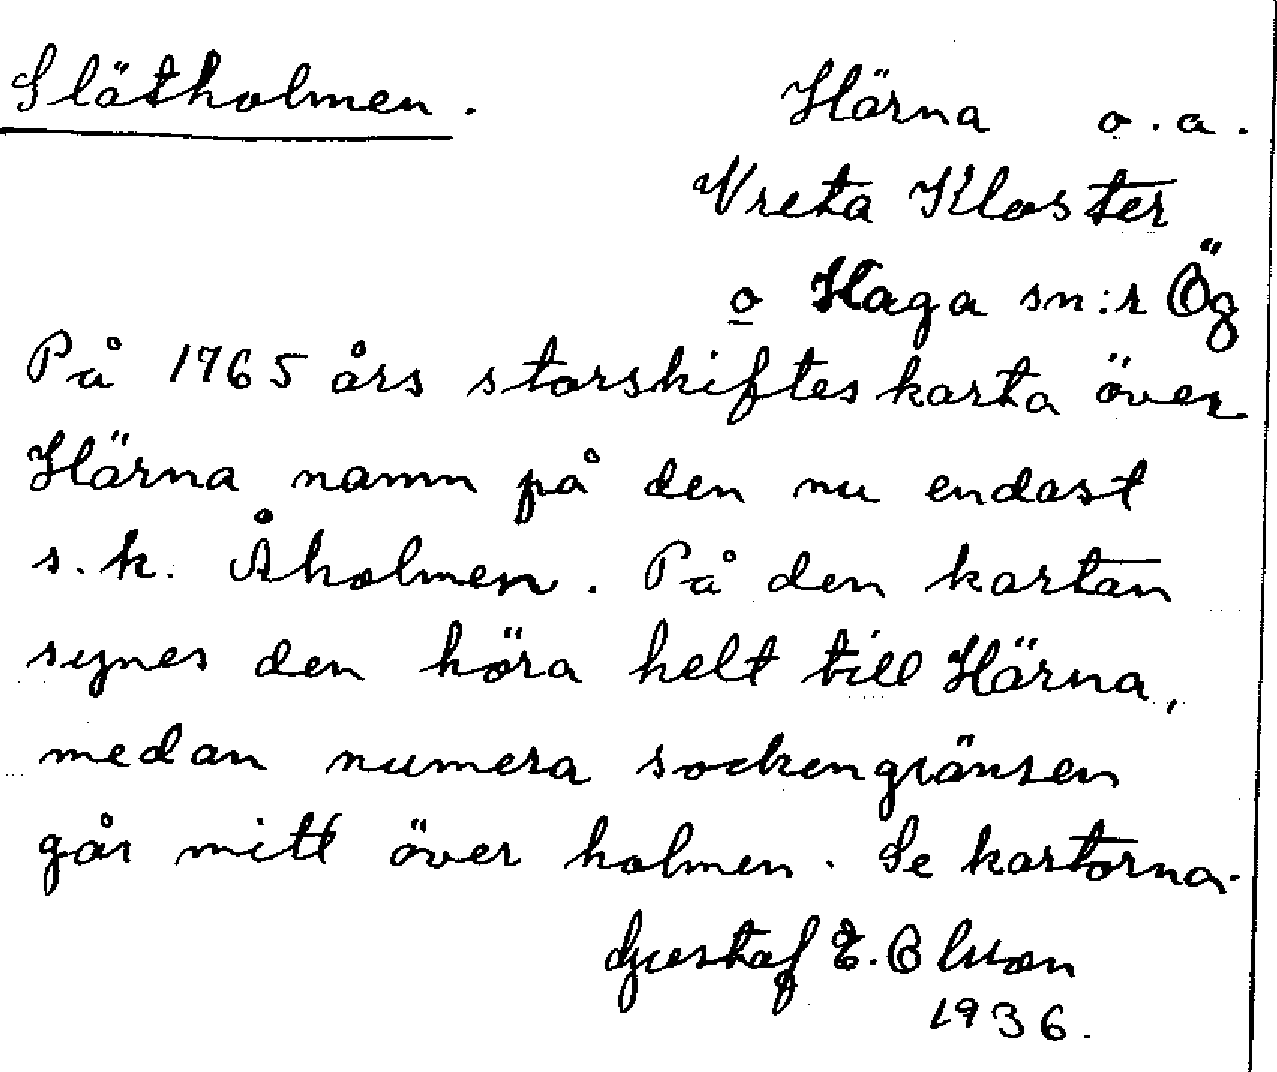 Slätholmen.
Härna o.a.
Vreta Kloster
o Haga sn:r Ög
På 1765 års storskifteskarta över
Härna namn på den nu endast
s.k. Åholmen. På den kartan
synes den höra helt till Härna,
medan numera sockengränsen
går mitt över holmen. Se kartorna.
Gustaf E. Olsson
1936.